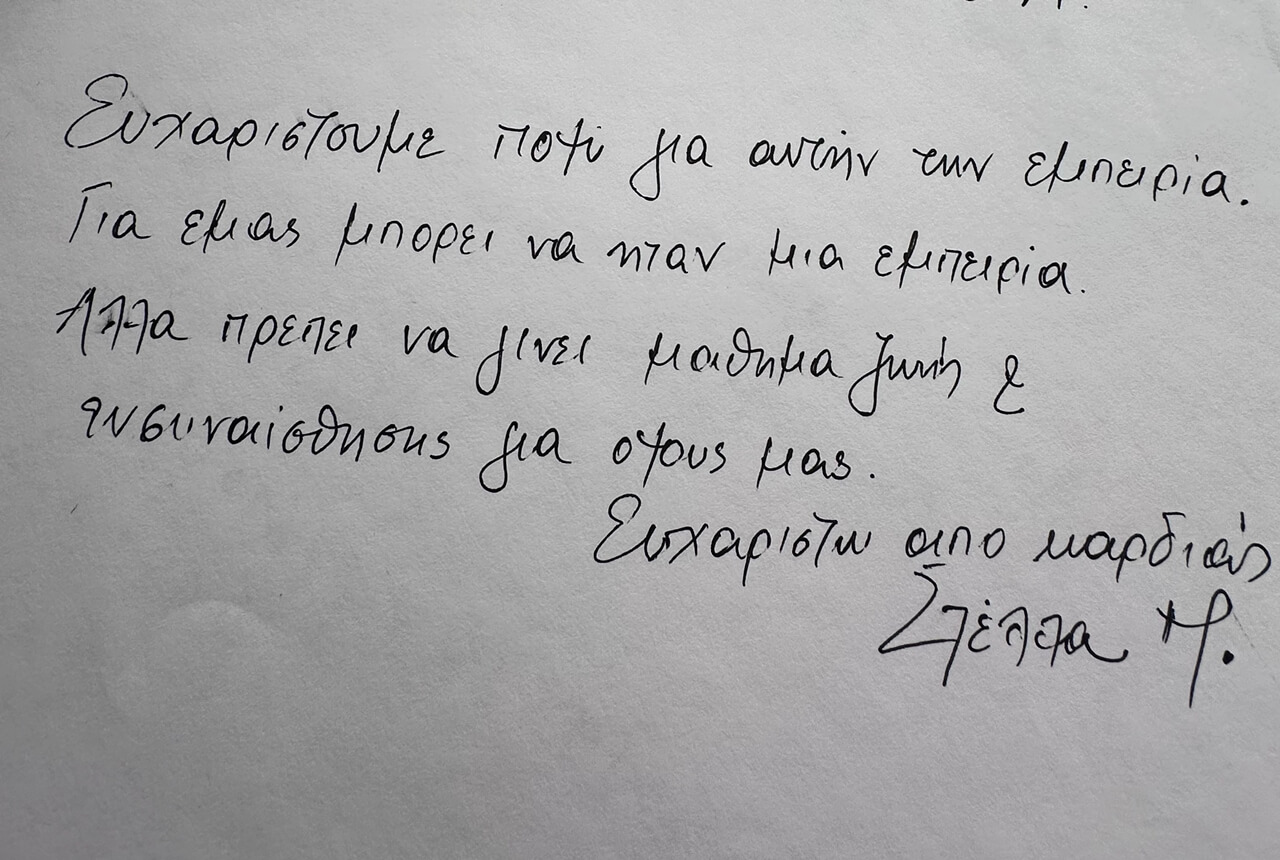 Ευχαριστουμε πολύ για αυτήν την εμπειρία.
Για εμας μπορει να ηταν μια εμπειρία.
Αλλα πρεπει να γινει μαθημα ζωής &
ενσυναίσθησης για ολους μας.
Ευχαριστω απο καρδιάς
Στέλλα Μ.